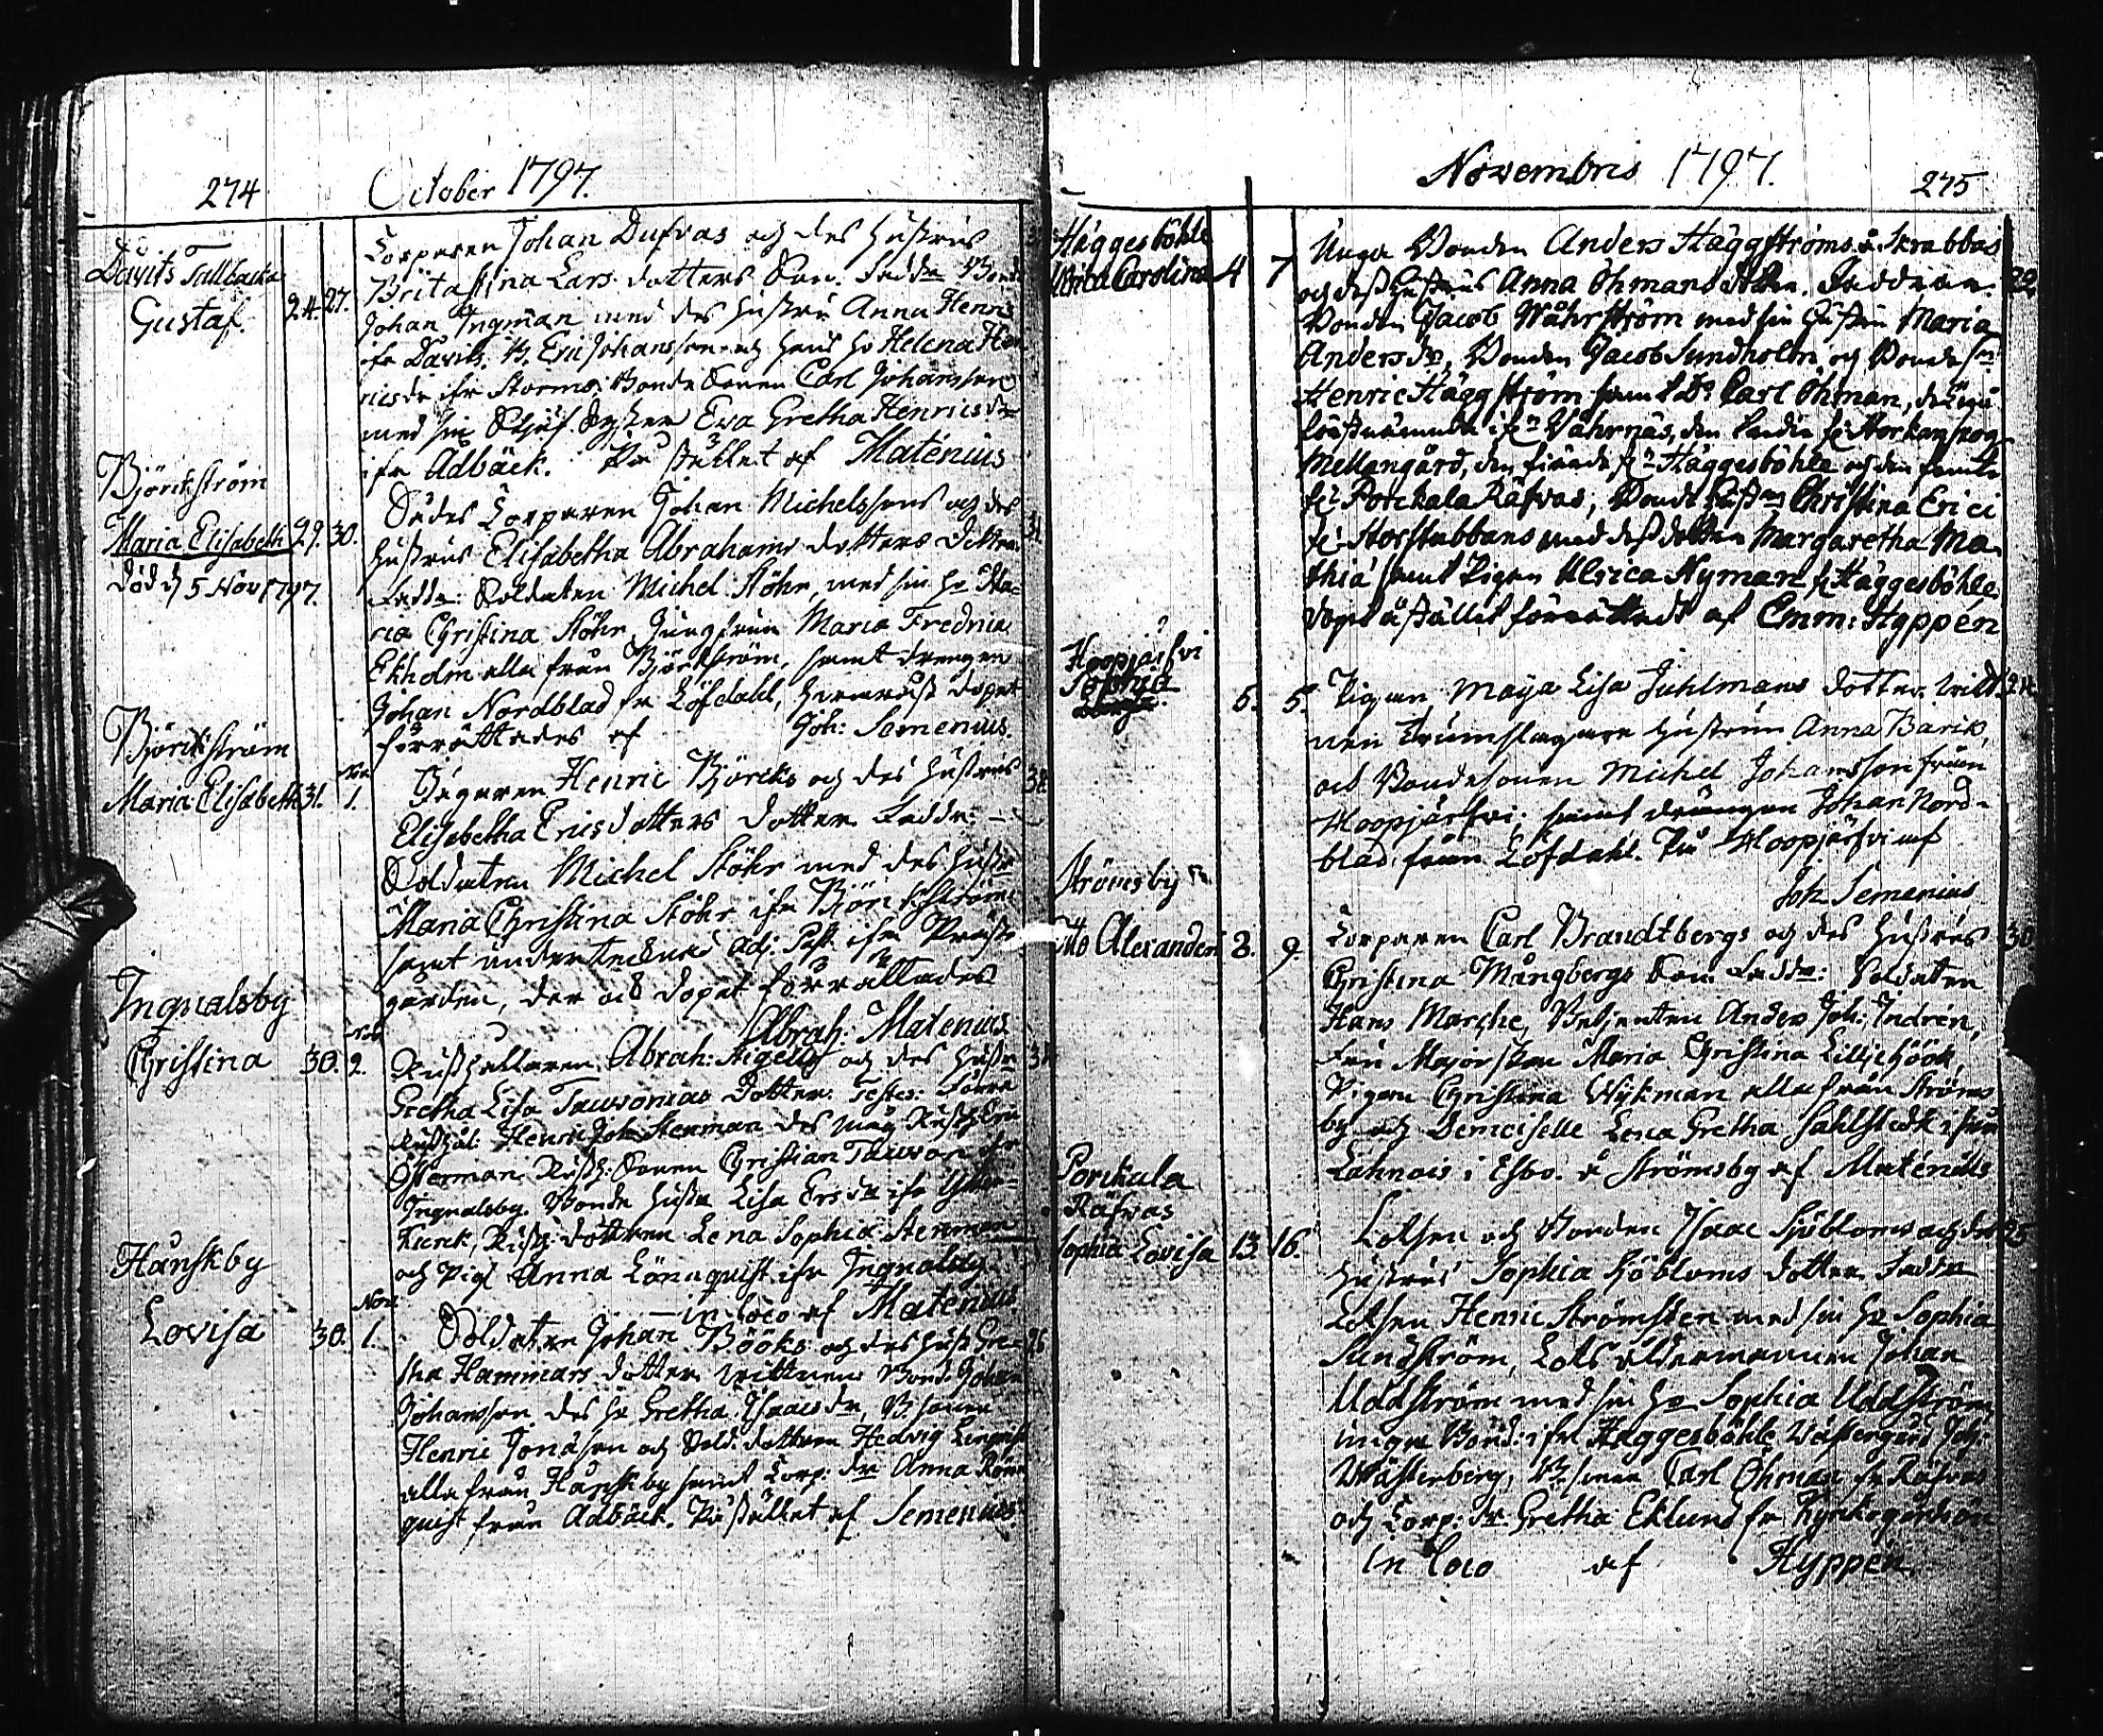 274 October 1797.
Davits Tallbacka
Gustaf. 24. 27.
Corporen Johan Dufvas och des hustrus
Brita Stina Lars dotters Son. Faddr Bond
Johan Ingman med des hustru Anna Henris
ifr Davits. B. Eric Johansson och hans h. Helena Hen
ricsdr ifr Storms. Bonde Sonen Carl Johansson
med sin Syster Eva Gretha Henricsdr
ifr Adbäck. På stället af Matenius
Björkström
Maria Elisabeth 29. 30.
död d 5 Nov 1797.
Corporen Johan Michelssons och des
hustrus Elisabetha Abrahams dotters dotter.
Fadd: Soldaten Michel Stöhr, med sin h. Ma=
ria Christina Stöhr, Jungfrun Maria Fredrica
Ekholm alla från Björkström, samt drengen
Johan Nordblad fr Löfdahl, dopet
förrättades af Joh: Semenius.
Björkström
Maria Elisabeth 31. Nov. 1.
Henric Björcks och des hustrus
Elisabetha Ericsdotters dotter. Faddr: —
Soldaten Michel Stöhr med des hustr
Maria Christina Stöhr ifr Björkström
samt undertecknad Adj: Past. ifrn Präste
gården, der och dopet förrättades
Abrah: Matenius.
Ingvalsby
Christina 30. Nov 2.
Rusthollaren Abrah: och des hustr
Gretha Lisa dotter. Testes: Förra
Rusthål: Henric Joh Stenman des måg Rusth Eric
Österman. Rusth: Sonen Christian ifr
Ingvalsby. Bonde hustr Lisa Ersdr ifr Ytter=
Kurck, Rusth: dottren Lena Sophia Stenman
och Pig Anna Lönnquist ifr Ingvalsby
— in loco af Matenius
Hånskby
Lovisa 30. Nov. 1.
Soldaten Johan Bööks och des hustr Gre=
tha Hammars dotter. Vittnen Bond. Johan
Johansson des h. Gretha Isaacsdr, B. sonen
Henric Jonasson och Sold. dottren Hedvig
alla från Hånskby samt Corp: dr Anna Rönn
quist från Adbäck. På stället af Semenius
Novembris 1797. 275
Häggesböhle
Ulrica Carolina 4 7
Unga Bonden Anders Häggströms å Skrabbas
och dess hustrus Anna Öhmans dotter. Faddrar.
Bonden Jacob Währström med sin hustru Maria
Andersdr, Bonden Jacob Sundholm och Bonde sn
Henric Häggström samt Carl Öhman, de
förstnämnde ifrn Vährnäs, den tredie fr
Mellangård, den fierde fr Häggesböhle och den femte
fr Porckala Räfvas, Bonde hustn Christina Erici
fr Storstubbans med dess dotter Margaretha Ma=
thiæ samt Pigan Ulrica Nyman fr Häggesböhle
dopt å stället förrättadt af Emm: Hyppén
Hoopjärfvi
Sophia 5. 5.
Pigan Maja Lisa Juhlmans dotter. Vitt
nen Trumslagare hustrun Anna Barck,
och Bondesonen Michel Johansson från
Hoopjärfvi. samt drängen Johan Nord=
blad från Löfdahl. På Hoopjärfvi af
Joh Semenius
Strömsby
Otto Alexander 8. 9. 30.
Corporen Carl Brandtbergs och des hustrus
Christina Mångbergs Son. Faddr: Soldaten
Hans Marche, Betjenten Anders Joh: Indrén,
Fru Majorskan Maria Christina Lilljehöök,
Pigan Christina Wykman alla från Ströms
by och Demoiselle Lena Gretha Sahlstedt ifrån
Lahnois i Esbo. å Strömsby af Matenius
Porckala
Räfvas
Sophia Lovisa 13. 16. 25
Lotsen och Bonden Isaac Sjöbloms och des
hustrus Sophia Sjöbloms dotter. Faddr
Lotsen Henric Strömsten med sin h. Sophia
Sundström, Lots åldermannen Johan
Uddström med sin h. Sophia Uddström
unga Bond. ifr Häggesböhle Västergård Joh:
Wästerberg, B. sonen Carl Öhman fr Räfvas
och Corp: dr Gretha Eklund fr Kyrkogårdsön
in loco af Hyppén